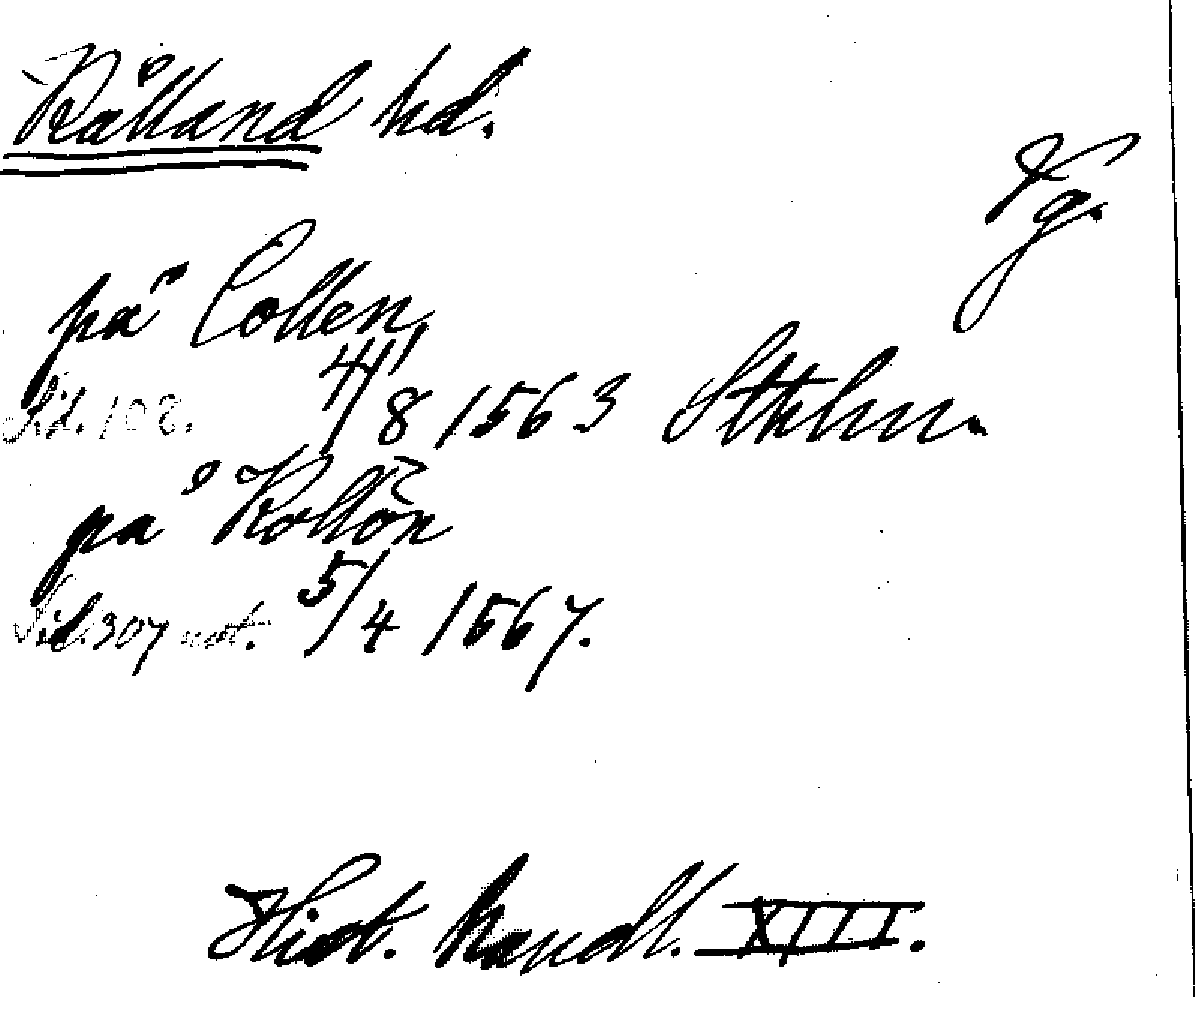 Kålland hd.
Vg.
på Collen,
Sid. 108. 4/8 1563 Sthlm
på Kollön
Sid. 307 not. 5/4 1567.
Hist. handl. XIII.